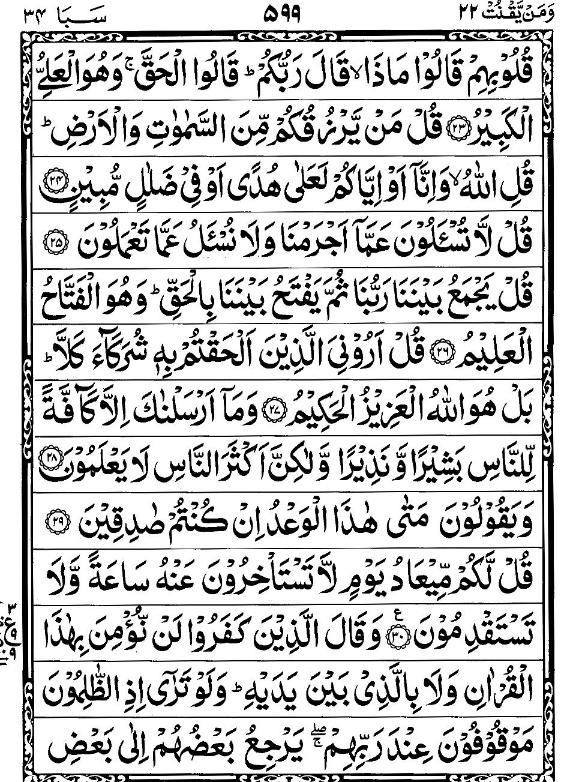 وَمَنْ يَّقْنُتْ ٢٢ ٥٩٩ سَبَا ٣٤
قُلُوْبِهِمْ قَالُوْا مَاذَا ۙ قَالَ رَبُّكُمْ ؕ قَالُوا الْحَقَّ ۚ وَهُوَ الْعَلِىُّ
الْكَبِيْرُ ﴿٢٣﴾ قُلْ مَنْ يَّرْزُقُكُمْ مِّنَ السَّمٰوٰتِ وَالْاَرْضِ ؕ
قُلِ اللّٰهُ ۙ وَاِنَّاۤ اَوْ اِيَّاكُمْ لَعَلٰى هُدًى اَوْ فِىْ ضَلٰلٍ مُّبِيْنٍ ﴿٢٤﴾
قُلْ لَّا تُسْـَٔلُوْنَ عَمَّاۤ اَجْرَمْنَا وَلَا نُسْـَٔلُ عَمَّا تَعْمَلُوْنَ ﴿٢٥﴾
قُلْ يَجْمَعُ بَيْنَنَا رَبُّنَا ثُمَّ يَفْتَحُ بَيْنَنَا بِالْحَقِّ ؕ وَهُوَ الْفَتَّاحُ
الْعَلِيْمُ ﴿٢٦﴾ قُلْ اَرُوْنِىَ الَّذِيْنَ اَلْحَقْتُمْ بِهٖ شُرَكَآءَ كَلَّا ؕ
بَلْ هُوَ اللّٰهُ الْعَزِيْزُ الْحَكِيْمُ ﴿٢٧﴾ وَمَاۤ اَرْسَلْنٰكَ اِلَّا كَآفَّةً
لِّلنَّاسِ بَشِيْرًا وَّنَذِيْرًا وَّلٰكِنَّ اَكْثَرَ النَّاسِ لَا يَعْلَمُوْنَ ﴿٢٨﴾
وَيَقُوْلُوْنَ مَتٰى هٰذَا الْوَعْدُ اِنْ كُنْتُمْ صٰدِقِيْنَ ﴿٢٩﴾
قُلْ لَّكُمْ مِّيْعَادُ يَوْمٍ لَّا تَسْتَاْخِرُوْنَ عَنْهُ سَاعَةً وَّلَا
تَسْتَقْدِمُوْنَ ﴿٣٠﴾ ع وَقَالَ الَّذِيْنَ كَفَرُوْا لَنْ نُّؤْمِنَ بِهٰذَا
الْقُرْاٰنِ وَلَا بِالَّذِىْ بَيْنَ يَدَيْهِ ؕ وَلَوْ تَرٰٓى اِذِ الظّٰلِمُوْنَ
مَوْقُوْفُوْنَ عِنْدَ رَبِّهِمْ ۖۚ يَرْجِعُ بَعْضُهُمْ اِلٰى بَعْضِ